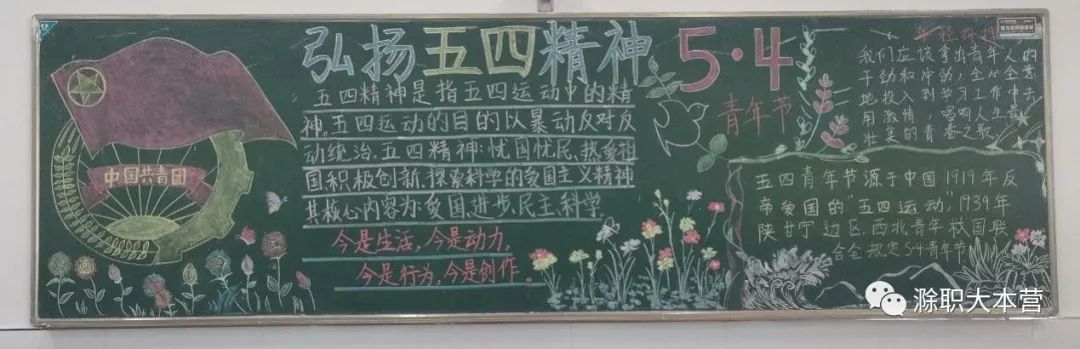 弘扬五四精神
五四精神是指五四运动中的精
神。五四运动的目的以暴动反对反
动统治。五四精神:忧国忧民、热爱祖
国积极创新、探索科学的爱国主义精神
其核心内容为:爱国、进步、民主、科学
今是生活,今是动力,
今是行为,今是创作。
中国共青团
5·4
青年节
我们应该拿出青年人的
干劲和冲劲,全心全意
地投入到学习工作中去
用激情,唱响人生最
壮美的青春之歌
五四青年节源于中国1919年反
帝爱国的"五四运动",1939年
陕甘宁边区西北青年救国联
合会规定5·4青年节
滁职大本营